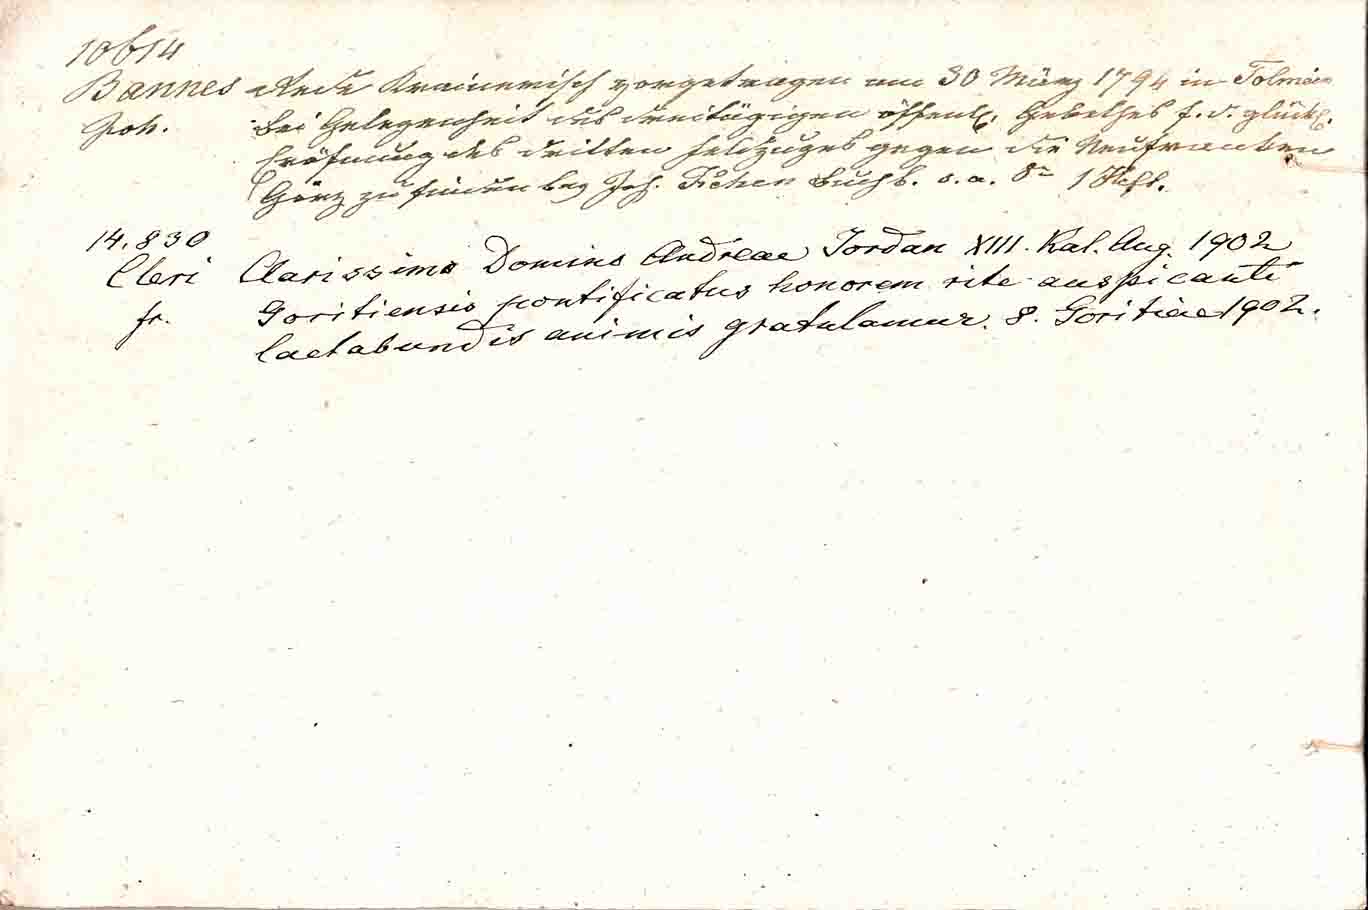 10614
Bannes Rede Krainerisch vorgetragen am 30 März 1794 in Tolmein
Joh. bei Gelegenheit des dreitägigen öffentl. Gebethes f. d. glückl.
Eröfnung des dritten Feldzuges gegen die Neufranken
Görz zu finden bey Jos. Buchb. s. a. 8º 1 Hft.
14.830
Cleri Clarissimo Domino Andreae Jordan XIII. Kal. Aug. 1902
fr. Goritiensis pontificatus honorem rite auspicanti
laetabundis animis gratulamur. 8. Goritiae 1902.